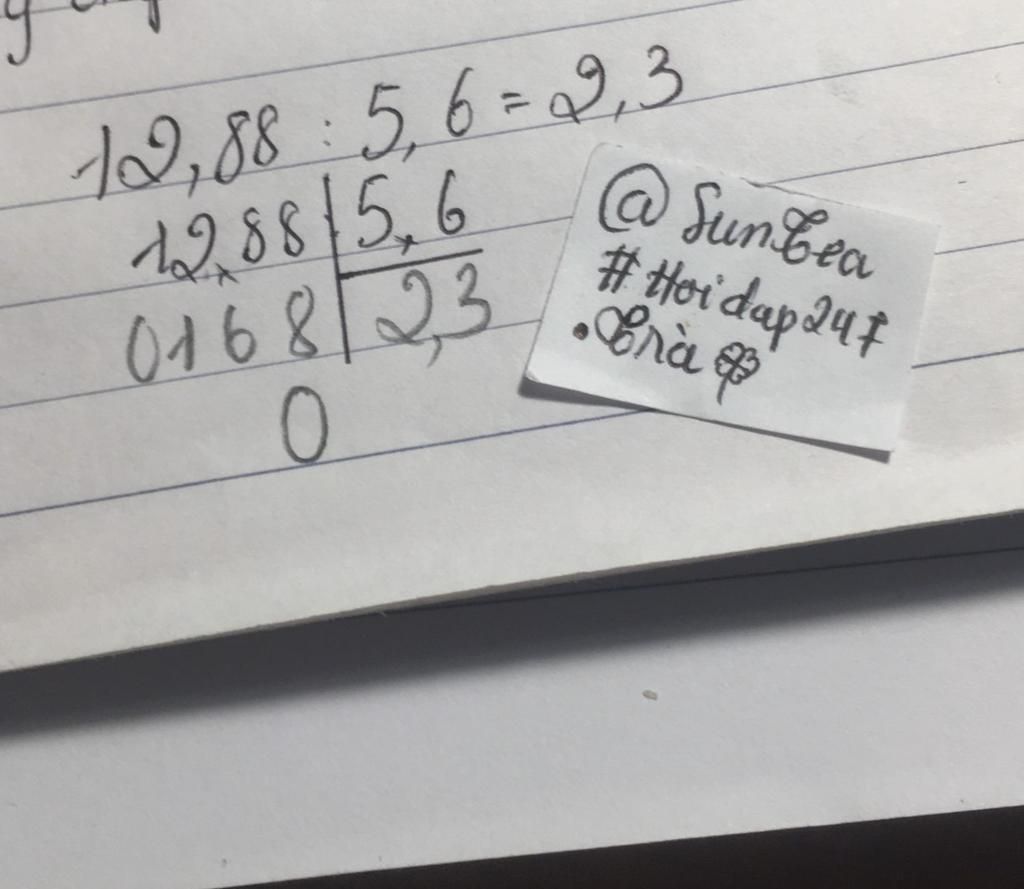 12,88 : 5,6 = 2,3
12,88 5,6
0168 2,3
0
@SunTea
#Hoidap247
.Trà